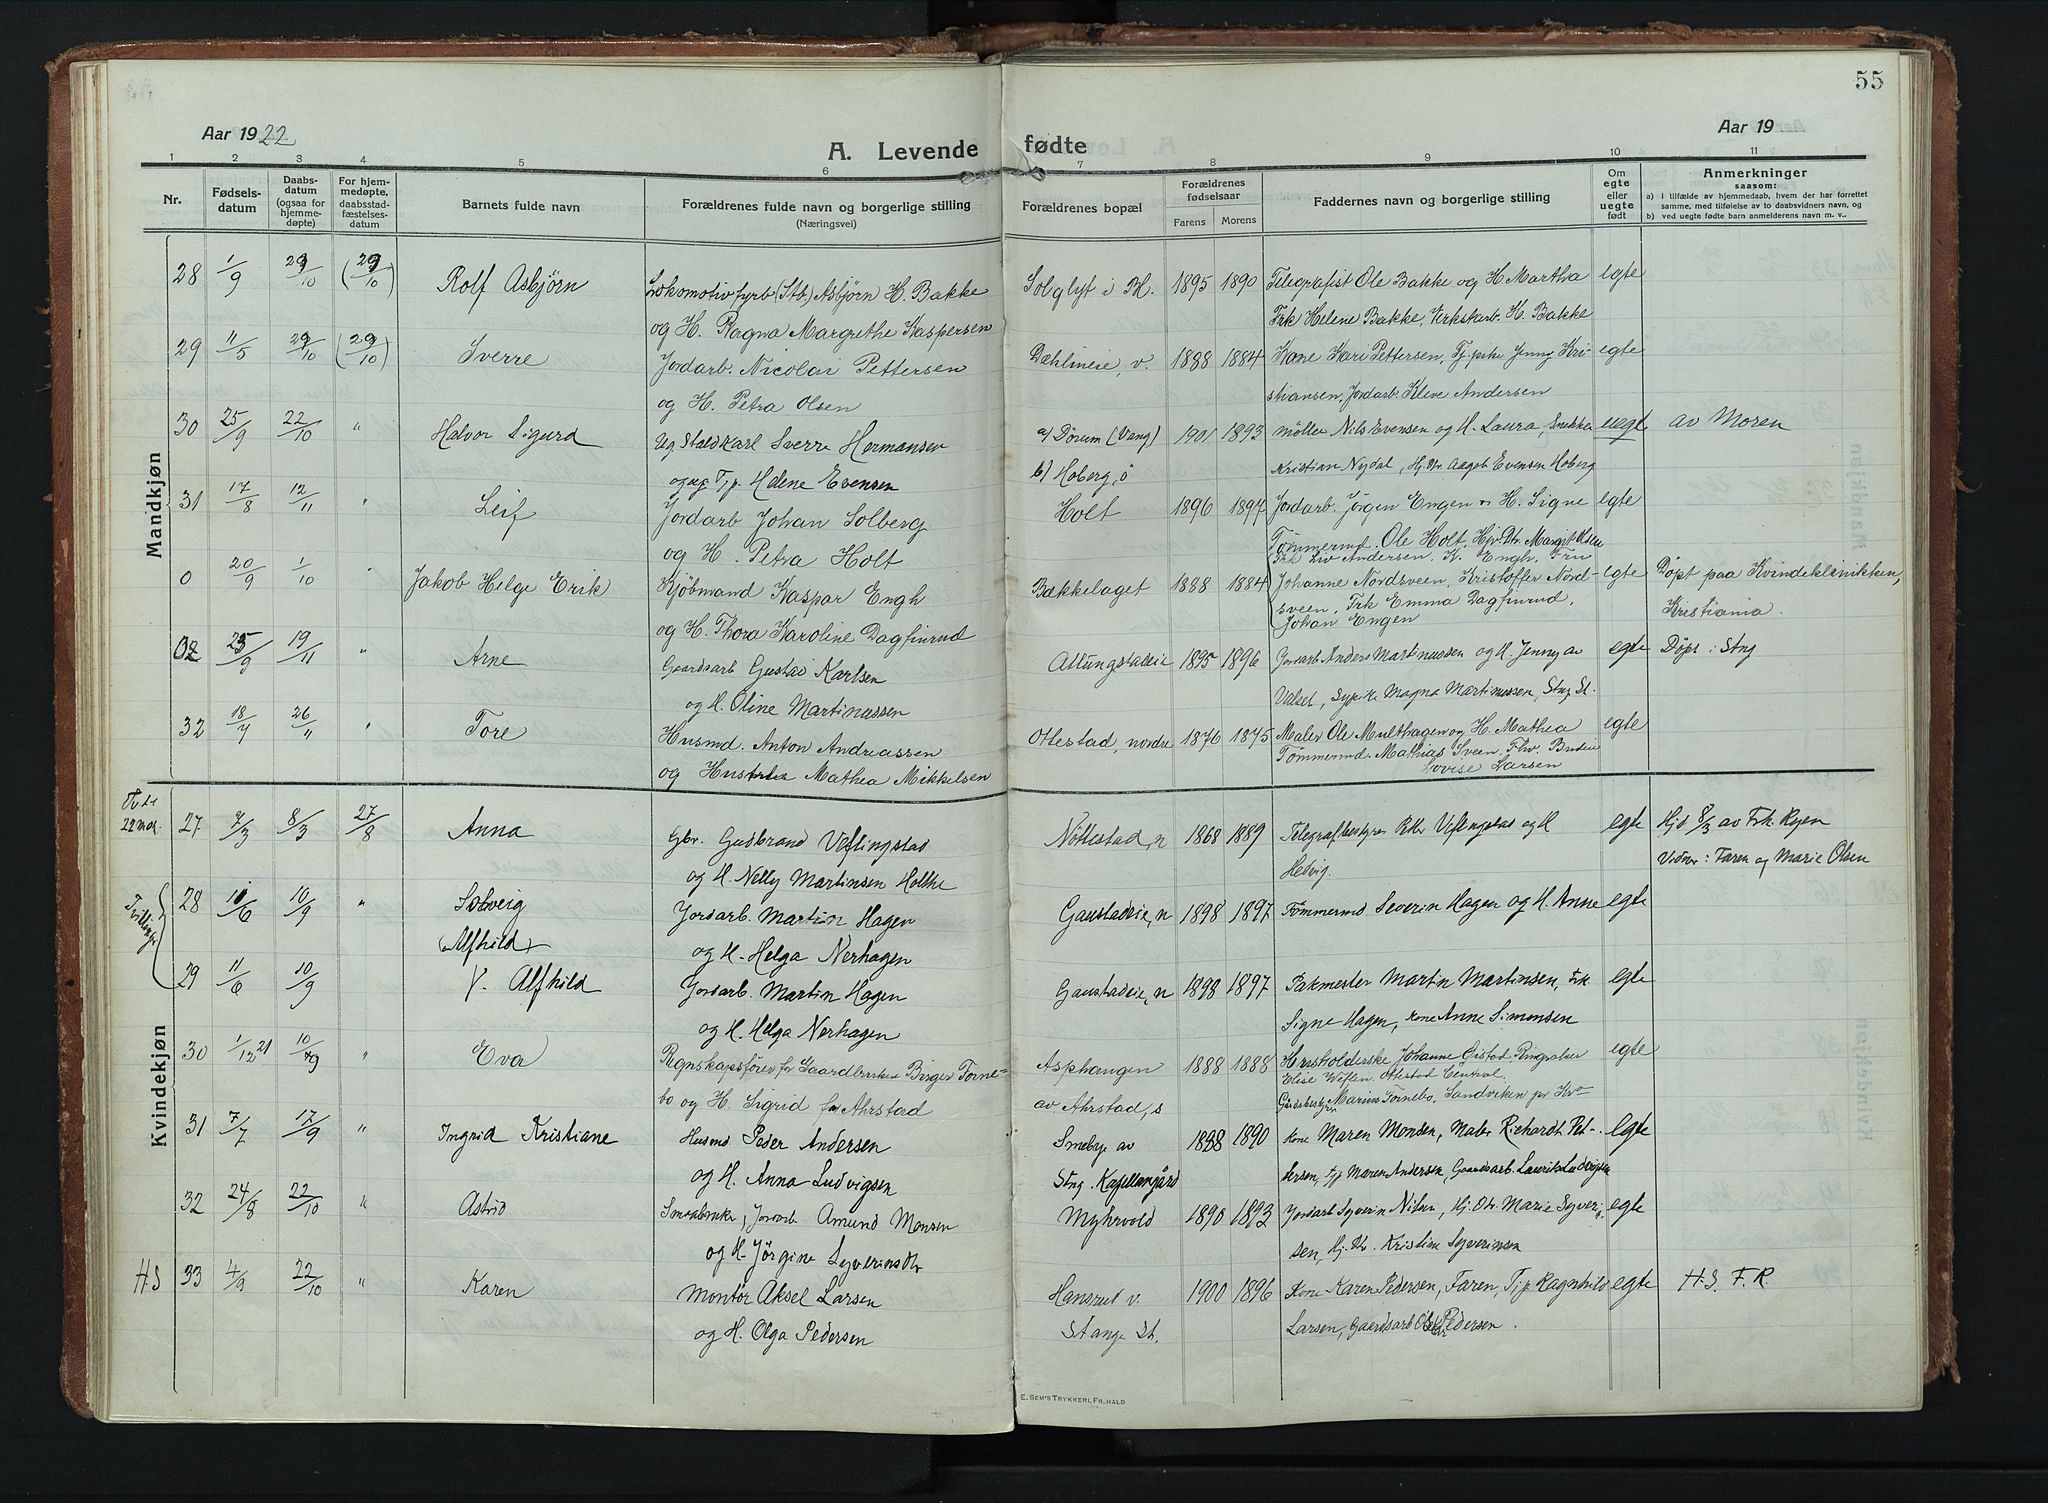 55
Aar 1922
A. Levende fødte
Aar 19
1 2 3 4 5 6 7 8 9 10 11
Nr.
Fødsels-
datum
Daabs-
datum
(ogsaa for
hjemme-
døpte)
For hjem-
medøpte,
daabsstad-
fæstelses-
datum
Barnets fulde navn
Forældrenes fulde navn og borgerlige stilling
(Næringsvei)
Forældrenes bopæl
Forældrenes
fødselsaar
Farens Morens
Faddernes navn og borgerlige stilling
Om
egte
eller
uegte
født
Anmerkninger
saasom:
a) I tilfælde av hjemmedaab, hvem der har forrettet
samme, med tilføielse av to daabsvidners navn, og
b) ved uegte fødte barn anmelderens navn m. v.
Mandkjøn
28 1/9 29/10 (29/10) Rolf Asbjørn Lokomotivfyrb. (Stb.) Asbjørn H. Bakke Solglyt i Bl. 1895 1890 Telegrafist Ole Bakke og H. Martha egte
og H. Ragna Margrethe Kaspersen Frk Helene Bakke, Verkstarb. H. Bakke
29 11/5 29/10 (29/10) Sverre Jordarb. Nicolai Pettersen Dæhlineie, v. 1888 1884 Kone Kari Pettersen, Tj. pike Jenny Kri- egte
og H. Petra Olsen stiansen, Jordarb. Kleve Andersen
30 25/9 22/10 " Halvor Sigurd Ug. Staldkarl Sverre Hermansen a) Dørum (Vang) 1901 1893 Møller Nils Evensen og H. Laura, Snekker uegt av Moren
og ug Tjp. Helene Evensen b) Hoberg, ø Kristian Nydal, Hj. Dtr. Aagot Evensen Hoberg
31 17/8 12/11 " Leif Jordarb Johan Solberg Holt 1896 1897 Jordarb. Jørgen Engen og H. Signe egte
og H. Petra Holt Tømmermd. Ole Holt, Hjv. Dtr. Margit Olsen
0 20/9 1/10 " Jakob Helge Erik Kjøbmand Kaspar Engh Bækkelaget 1888 1884 Frk Liv Andersen. K. Engh. Fru egte Døpt paa Kvindeklinikken,
Johanne Nordsveen, Kristoffer Nord-
og H. Thora Karoline Dagfinrud sveen, Frk Emma Dagfinrud, Kristiania.
Johan Engen
02 25/9 19/11 " Arne Gaardsarb Gustav Karlsen 1895 1896 Jordarb Anders Martinussen og H. Jenny av egte Døpt i Stng
og H. Oline Martinussen Valset, Sypike Magna Martinussen, Stng St.
32 18/7 26/11 " Tore Husmd. Anton Andreassen Ottestad, nordre 1870 1875 Maler Ole Multhagen og H. Mathea egte
og Hustru Mathea Mikkelsen Tømmermd. Mathias Sveen,
Lovise Larsen
Kvindekjøn
27 7/3 8/3 27/8 Anna Gbr. Gudbrand Veflingstad Nøttestad, n 1868 1889 Telegrafbestyrer Veflingstad og H egte Hjd 8/3 av Frk. Ryen
og H. Nelly Martinsen Holthe Hedvig. Vidner: Faren og Marie Olsen
Tvillinger
28 10/6 10/9 " Solveig Jordarb. Martin Hagen Gaustadeie, n 1898 1897 Tømmermd Severin Hagen og H. Anne egte
(Alfhild) og H. Helga Nerhagen
29 11/6 10/9 V. Alfhild Jordarb. Martin Hagen Gaustadeie, n 1898 1897 Pakmester Martin Martinsen, Frk. egte
og H. Helga Nerhagen Signe Hagen, kone Anne Simonsen
30 1/12 21 10/9 " Eva Regnskapsfører for Gaardbruker Birger Torne- Asphaugen 1888 1888 Husholderske Johanne Ringsaker egte
Elise Weflen, Ottestad Central.
bo og H. Sigrid f. Ahrstad av Ahrstad, s Gårdsbestyrer Marius Tornebo, Sandviken
31 7/7 17/9 " Ingrid Kristiane Husmd Peder Andersen Smebye av 1888 1890 Kone Maren Monsen, Maler Richardt Pet- egte
og H. Anna Ludvigsen Stng. Kapellangård tersen, tjp Maren Andersen, Gaardsarb. Laurits Ludvigsen
32 24/8 22/10 " Astrid Smaabruker, Jordarb Amund Monsen Myhrvold 1890 1893 Jordarb Syverin Nilsen, Hj. Dtr. Marie Syver- egte
og H. Jørgine Syverinsdtr sen, Hj. Dtr. Kristine Syverinsen
HS 33 4/9 22/10 " Karen Montør Aksel Larsen Hansrud v. 1900 1896 Kone Karen Pedersen, Faren, Tjp Ragnhild egte H.S. F.R.
og H. Olga Pedersen Stange St. Larsen, Gaardsarb Oskar Pedersen.
E. SEM'S TRYKKERI, FR.HALD